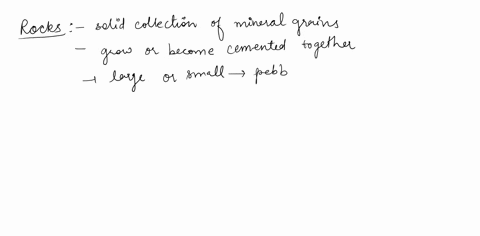 Rocks :- solid collection of mineral grains
- grow or become cemented together
→ large or small → pebb